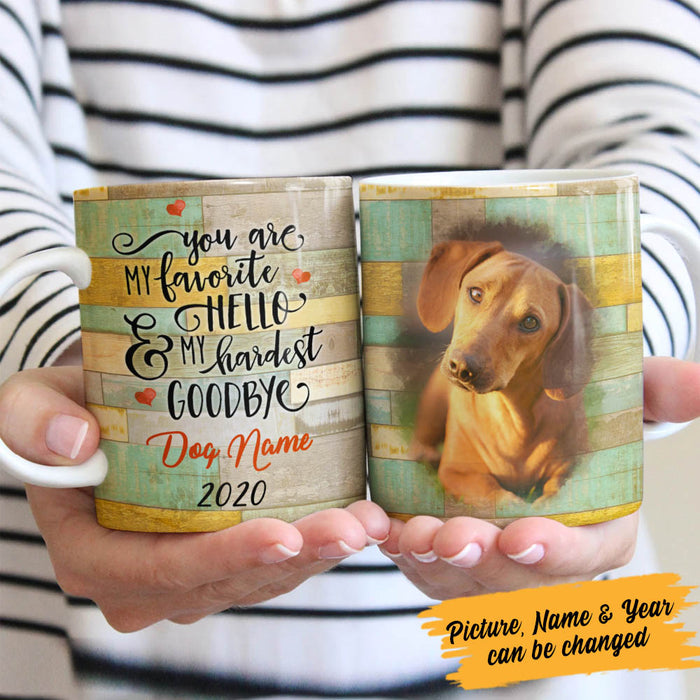 you are
MY favorite
HELLO
& MY hardest
GOODBYE
Dog Name
2020
Picture, Name & Year
can be changed